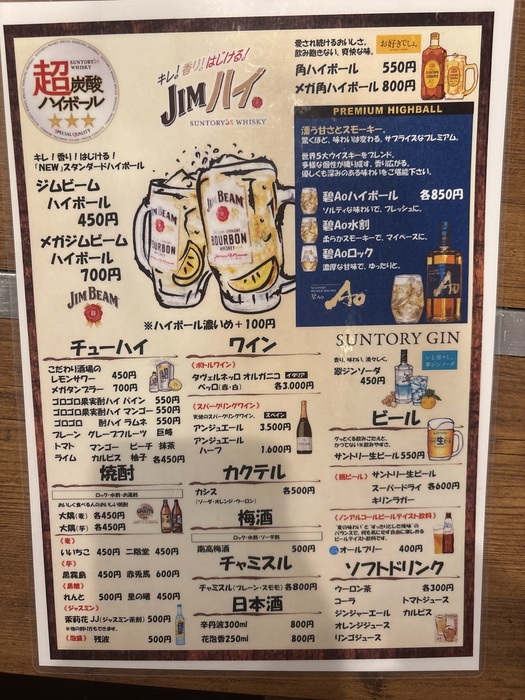 超炭酸
ハイボール
SUNTORY WHISKY
SPECIAL QUALITY
キレ！香り！はじける！
JIMハイ。
SUNTORY WHISKY
愛され続けるおいしさ。
飲み飽きない、爽快な味。
お好きでしょ。
角ハイボール 550円
メガ角ハイボール 800円
PREMIUM HIGHBALL
漂う甘さとスモーキー。
驚くほど、味わいは変わる、サプライズなプレミアム。
世界5大ウイスキーをブレンド。
多様な個性が織り成す、香り広がる。
優しくも深みのある味わいをご堪能下さい。
碧Aoハイボール 各850円
ソルティな味わいで、フレッシュに。
碧Ao水割
柔らかスモーキーで、マイペースに。
碧Aoロック
濃厚な甘味で、ゆったりと。
Ao
キレ！香り！はじける！
「NEW」スタンダードハイボール
ジムビーム
ハイボール
450円
メガジムビーム
ハイボール
700円
JIM BEAM
JIM BEAM
BOURBON
JIM BEAM
BOURBON
WHISKEY
※ハイボール濃いめ＋100円
チューハイ
こだわり酒場の
レモンサワー 450円
メガタンブラー 700円
ゴロゴロ果実酎ハイ パイン 550円
ゴロゴロ果実酎ハイ マンゴー 550円
ゴロゴロ 酎ハイ ラムネ 550円
プレーン グレープフルーツ 巨峰
トマト マンゴー ピーチ 抹茶
ライム カルピス 柚子 各450円
焼酎
ロック・水割・お湯割
おいしく食べる人のおいしい焼酎
大隅(麦) 各450円
大隅(芋) 各450円
(麦)
いいちこ 450円 二階堂 450円
(芋)
黒霧島 450円 赤兎馬 600円
(黒糖)
れんと 500円 里の曙 450円
(ジャスミン)
茉莉花 JJ(ジャスミン茶割) 500円
※他の割り方もできます。
(泡盛) 残波 500円
ワイン
(ボトルワイン)
タヴェルネッロ オルガニコ イタリア
ペッロ(赤・白) 各3.000円
(スパークリングワイン)
天使のスパークリングワイン、 スペイン
アンジュエール 3.500円
アンジュエール
ハーフ 1.600円
カクテル
カシス 各500円
(ソーダ・オレンジ・ウーロン)
梅酒
ロック・水割・ソーダ割
南高梅酒 500円
チャミスル
チャミスル(プレーン・スモモ) 各800円
日本酒
辛丹波300ml 800円
花泡香250ml 800円
SUNTORY GIN
香り、味わい、清々しく。
翠ジンソーダ
450円
ビール
サントリー生ビール550円
(瓶ビール) サントリー生ビール
スーパードライ 各600円
キリンラガー
(ノンアルコールビールテイスト飲料)
オールフリー 400円
ソフトドリンク
ウーロン茶 各300円
コーラ トマトジュース
ジンジャーエール カルピス
オレンジジュース
リンゴジュース